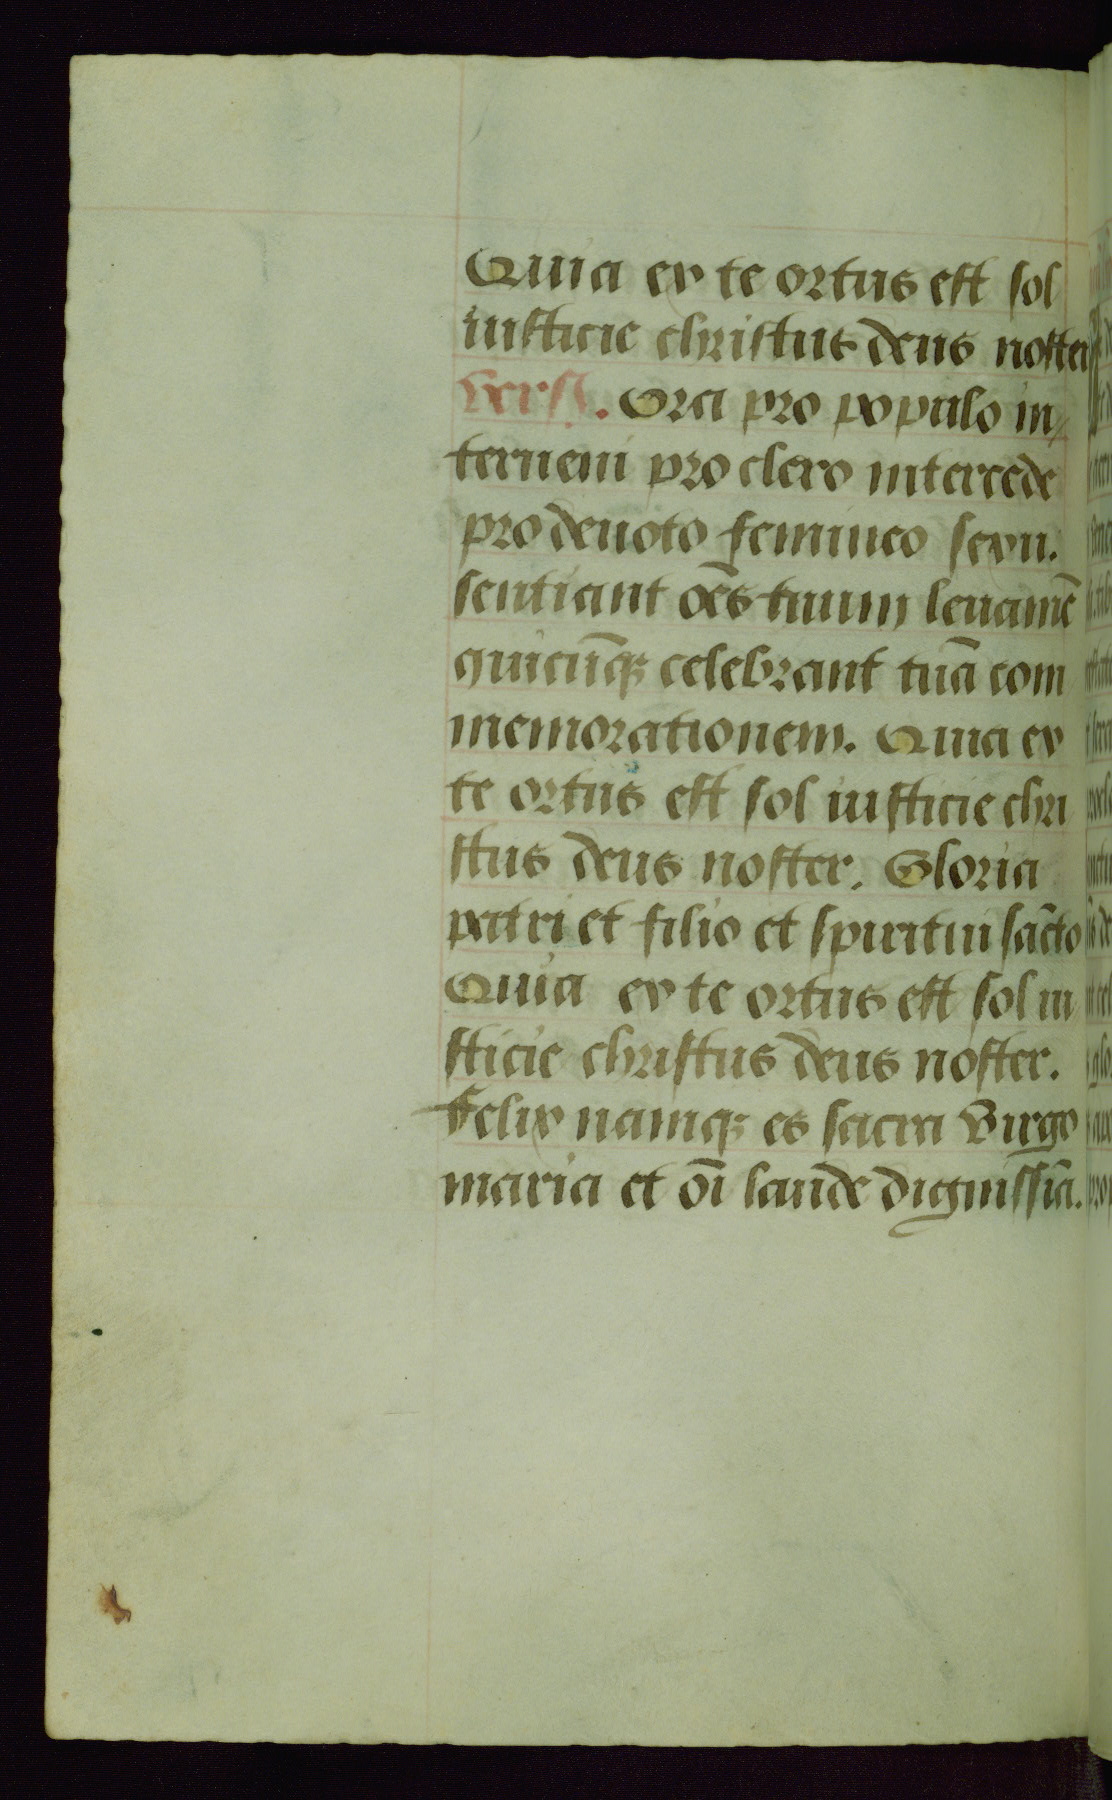 Quia ex te ortus est sol
iusticie christus deus noster
Vers. Ora pro populo in,
terueni pro clero intercede
pro deuoto femineo sexu.
sentiant oēs tuum leuamē
quicūqꝫ celebrant tuā com
memorationem. Quia ex
te ortus est sol iusticie chri
stus deus noster. Gloria
patri et filio et spiritui sācto
Quia ex te ortus est sol iu
sticie christus deus noster.
Felix namqꝫ es sacra Virgo
maria et oī laude dignissīa.